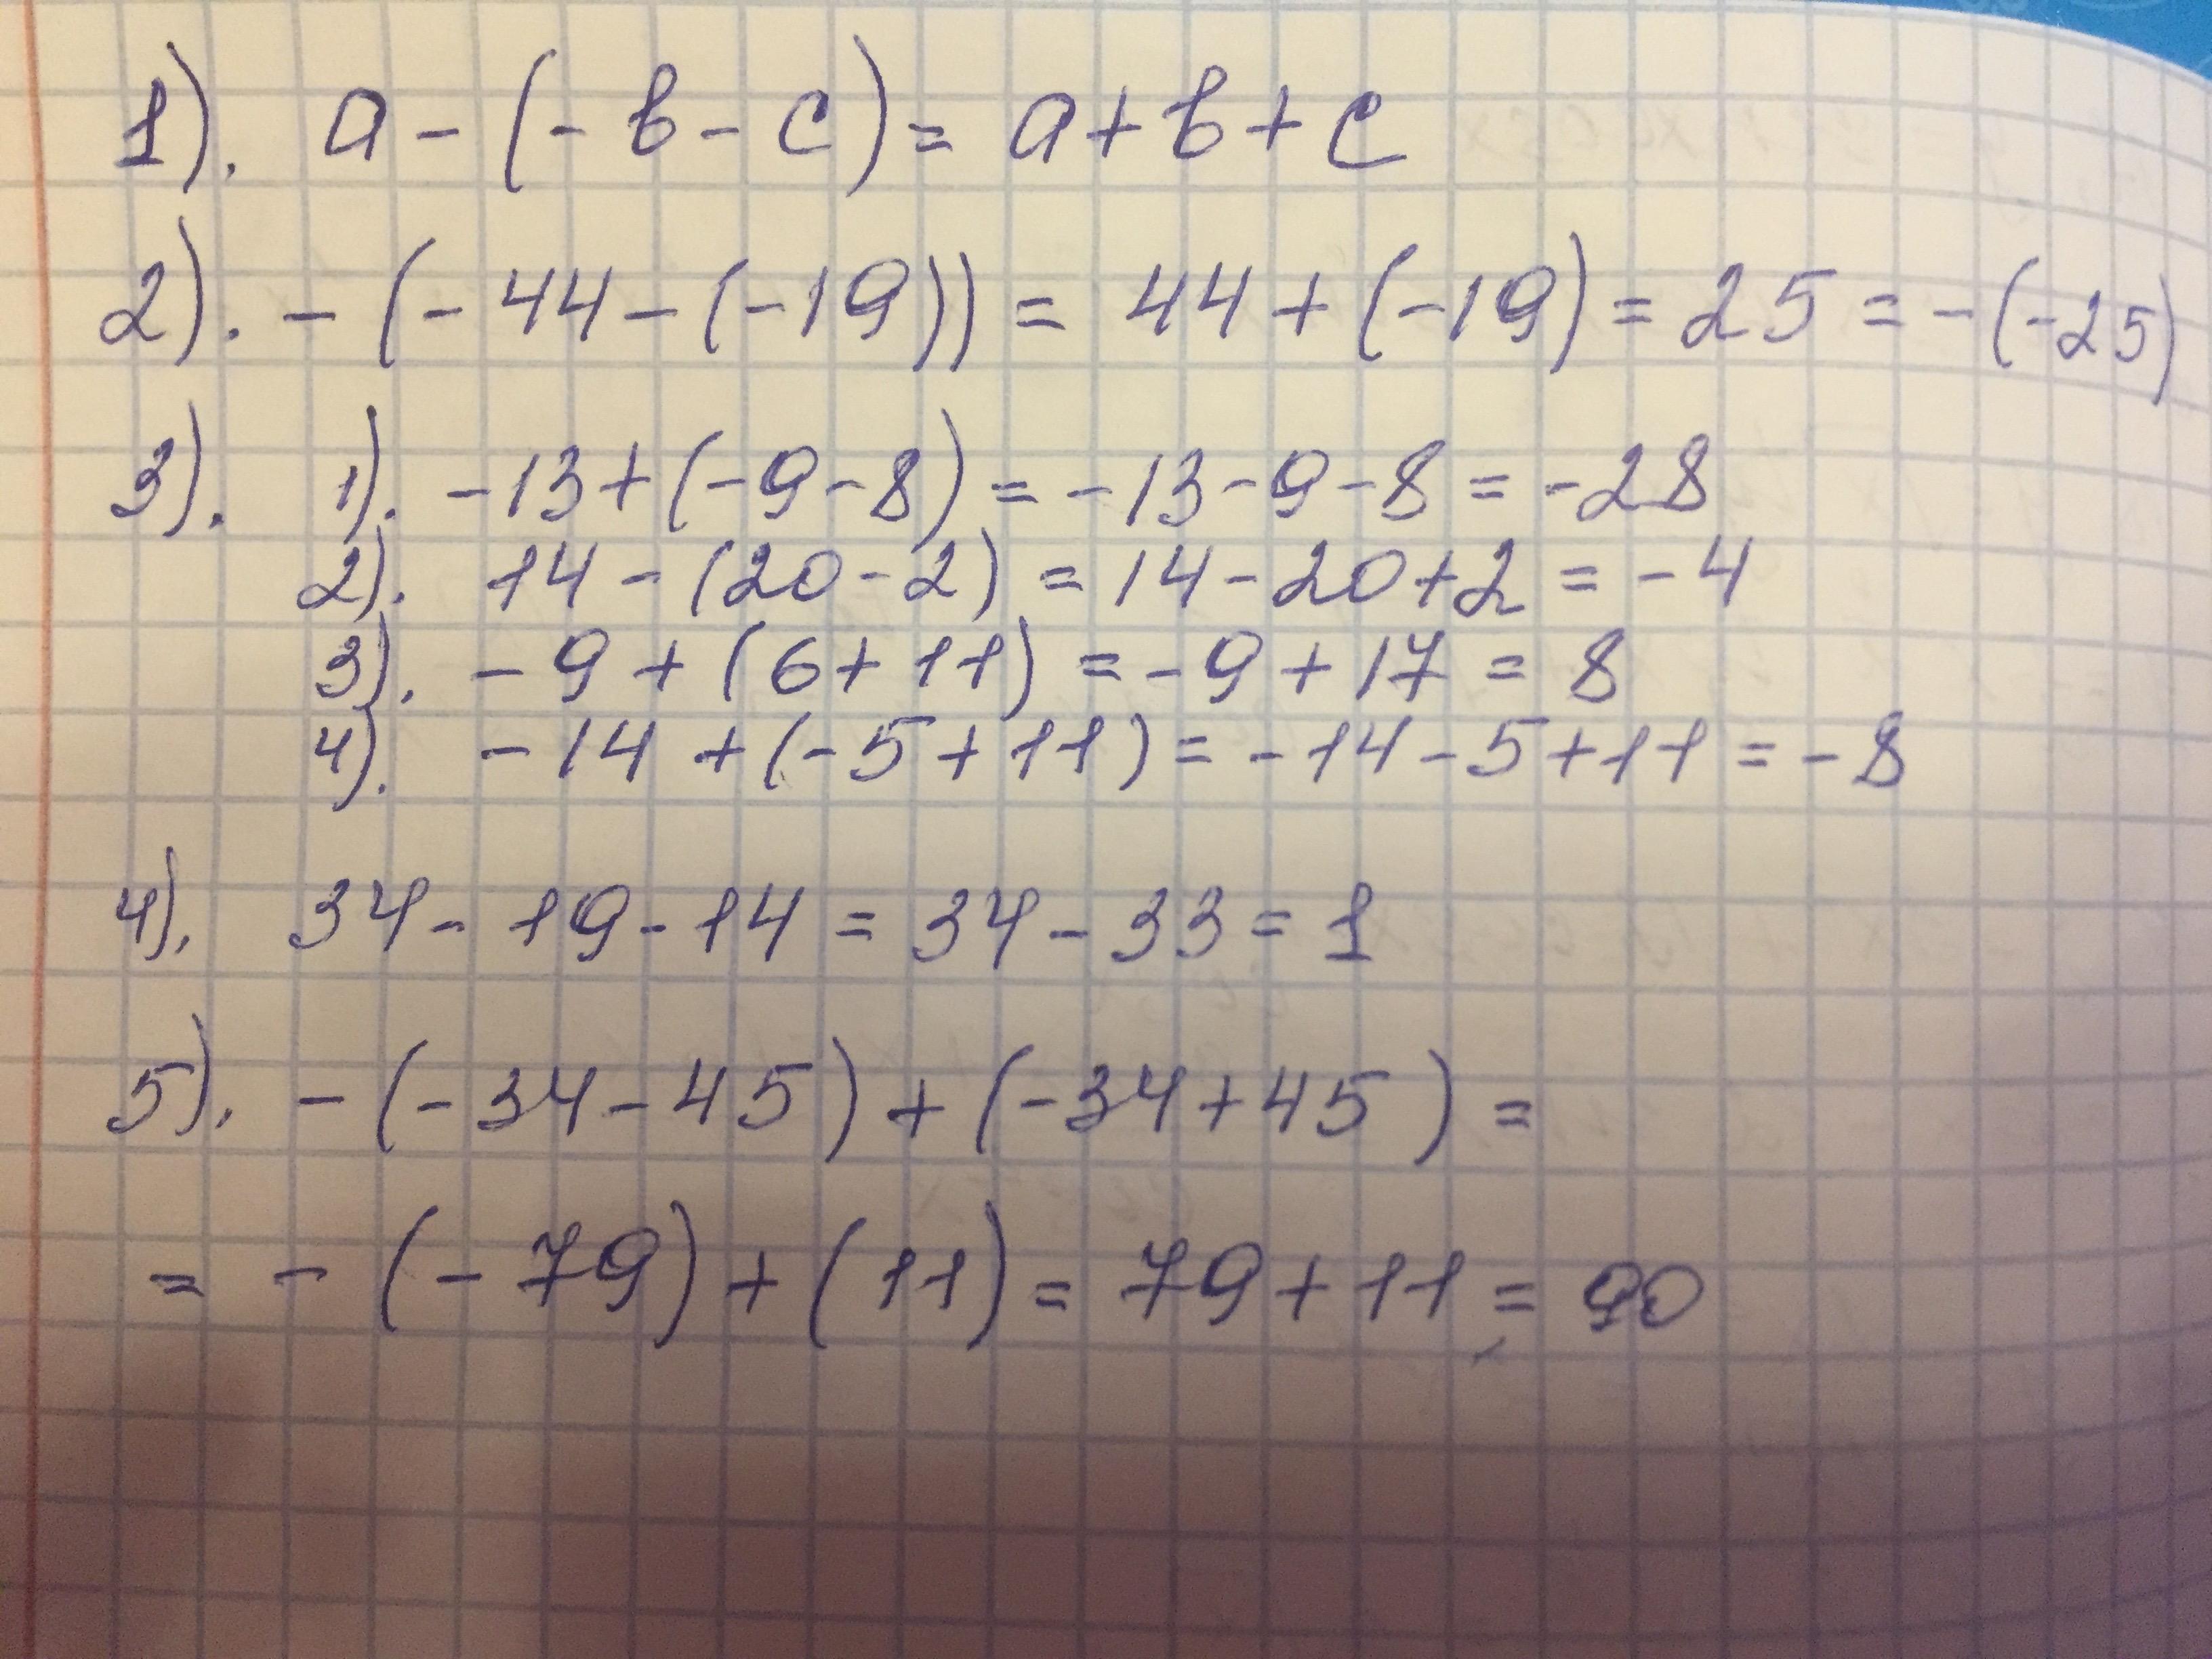 1). a - (- b - c) = a + b + c
2). - (- 44 - (-19)) = 44 + (-19) = 25 = - (-25)
3). 1). -13 + (-9 - 8) = -13 - 9 - 8 = -28
2). 14 - (20 - 2) = 14 - 20 + 2 = -4
3). -9 + (6 + 11) = -9 + 17 = 8
4). -14 + (-5 + 11) = -14 - 5 + 11 = -8
4). 34 - 19 - 14 = 34 - 33 = 1
5). - (-34 - 45) + (-34 + 45) =
= - (-79) + (11) = 79 + 11 = 90